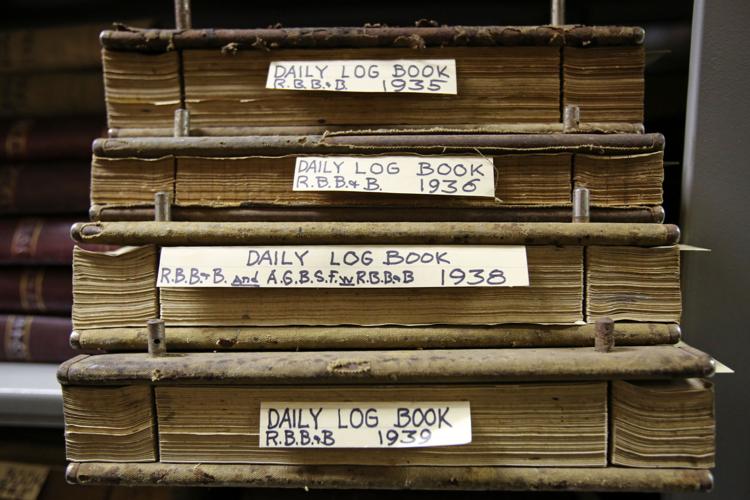 DAILY LOG BOOK
R.B.B.&B. 1935
DAILY LOG BOOK
R.B.B.&B. 1936
DAILY LOG BOOK
R.B.B.&B. and A.G.B.S.F. w R.B.B.&B 1938
DAILY LOG BOOK
R.B.B.&B 1939